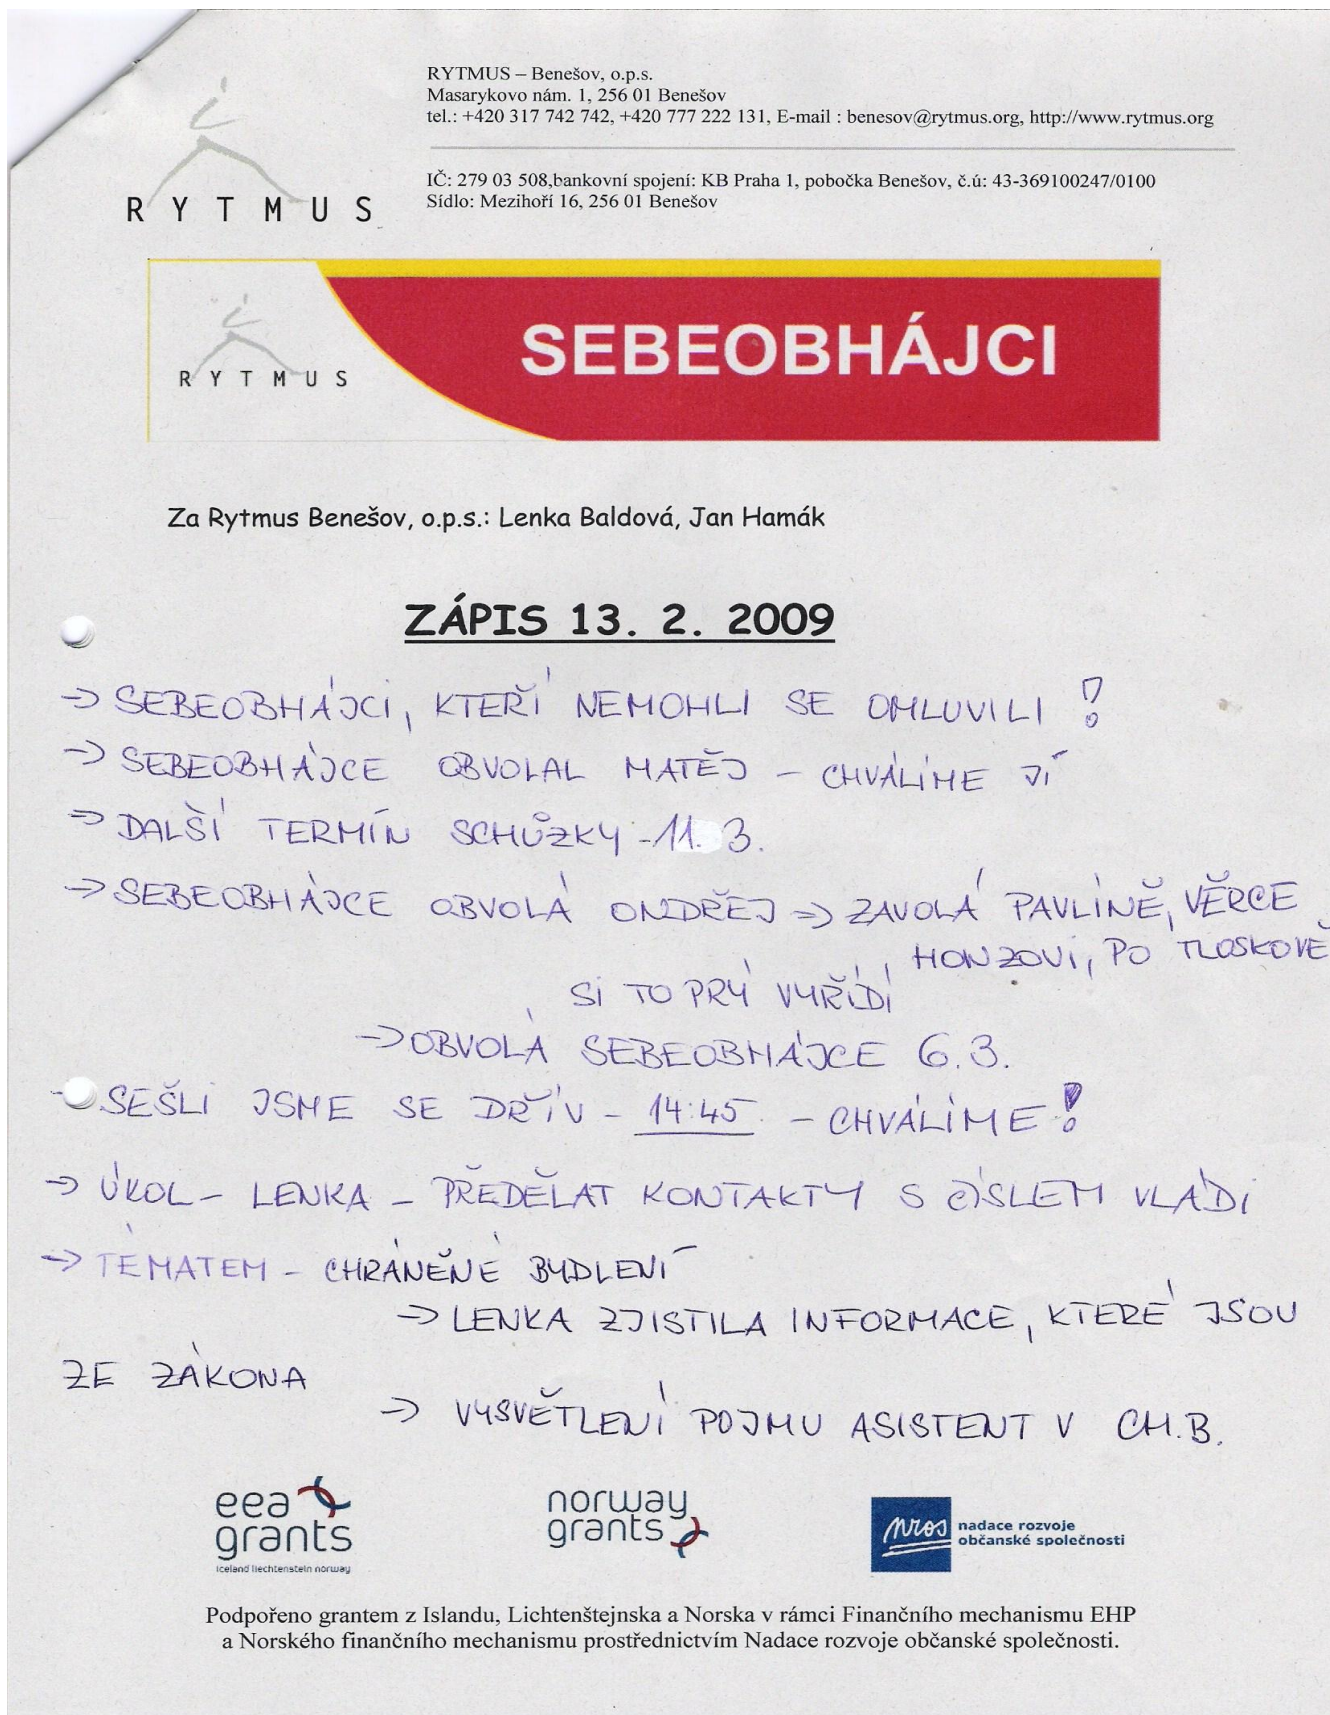 RYTMUS – Benešov, o.p.s.
Masarykovo nám. 1, 256 01 Benešov
tel.: +420 317 742 742, +420 777 222 131, E-mail : benesov@rytmus.org, http://www.rytmus.org
IČ: 279 03 508,bankovní spojení: KB Praha 1, pobočka Benešov, č.ú: 43-369100247/0100
Sídlo: Mezihoří 16, 256 01 Benešov
RYTMUS
SEBEOBHÁJCI
RYTMUS
Za Rytmus Benešov, o.p.s.: Lenka Baldová, Jan Hamák
ZÁPIS 13. 2. 2009
→ SEBEOBHÁJCI, KTEŘÍ NEMOHLI SE OMLUVILI !
→ SEBEOBHÁJCE OBVOLAL MATĚJ – CHVÁLÍME JÍ
→ DALŠÍ TERMÍN SCHŮZKY - 11. 3.
→ SEBEOBHÁJCE OBVOLÁ ONDŘEJ → ZAVOLÁ PAVLÍNĚ, VĚRCE
HONZOVI, PO TLOSKOVĚ
SI TO PRÝ VYŘÍDÍ
→ OBVOLÁ SEBEOBHÁJCE 6.3.
- SEŠLI JSME SE DŘÍV – 14:45 – CHVÁLÍME!
→ ÚKOL – LENKA – PŘEDĚLAT KONTAKTY S ČÍSLEM VLÁDI
→ TÉMATEM – CHRÁNĚNÉ BYDLENÍ
→ LENKA ZJISTILA INFORMACE, KTERÉ JSOU
ZE ZÁKONA
→ VYSVĚTLENÍ POJMU ASISTENT V CH.B.
eea
grants
iceland liechtenstein norway
norway
grants
nros
nadace rozvoje
občanské společnosti
Podpořeno grantem z Islandu, Lichtenštejnska a Norska v rámci Finančního mechanismu EHP
a Norského finančního mechanismu prostřednictvím Nadace rozvoje občanské společnosti.